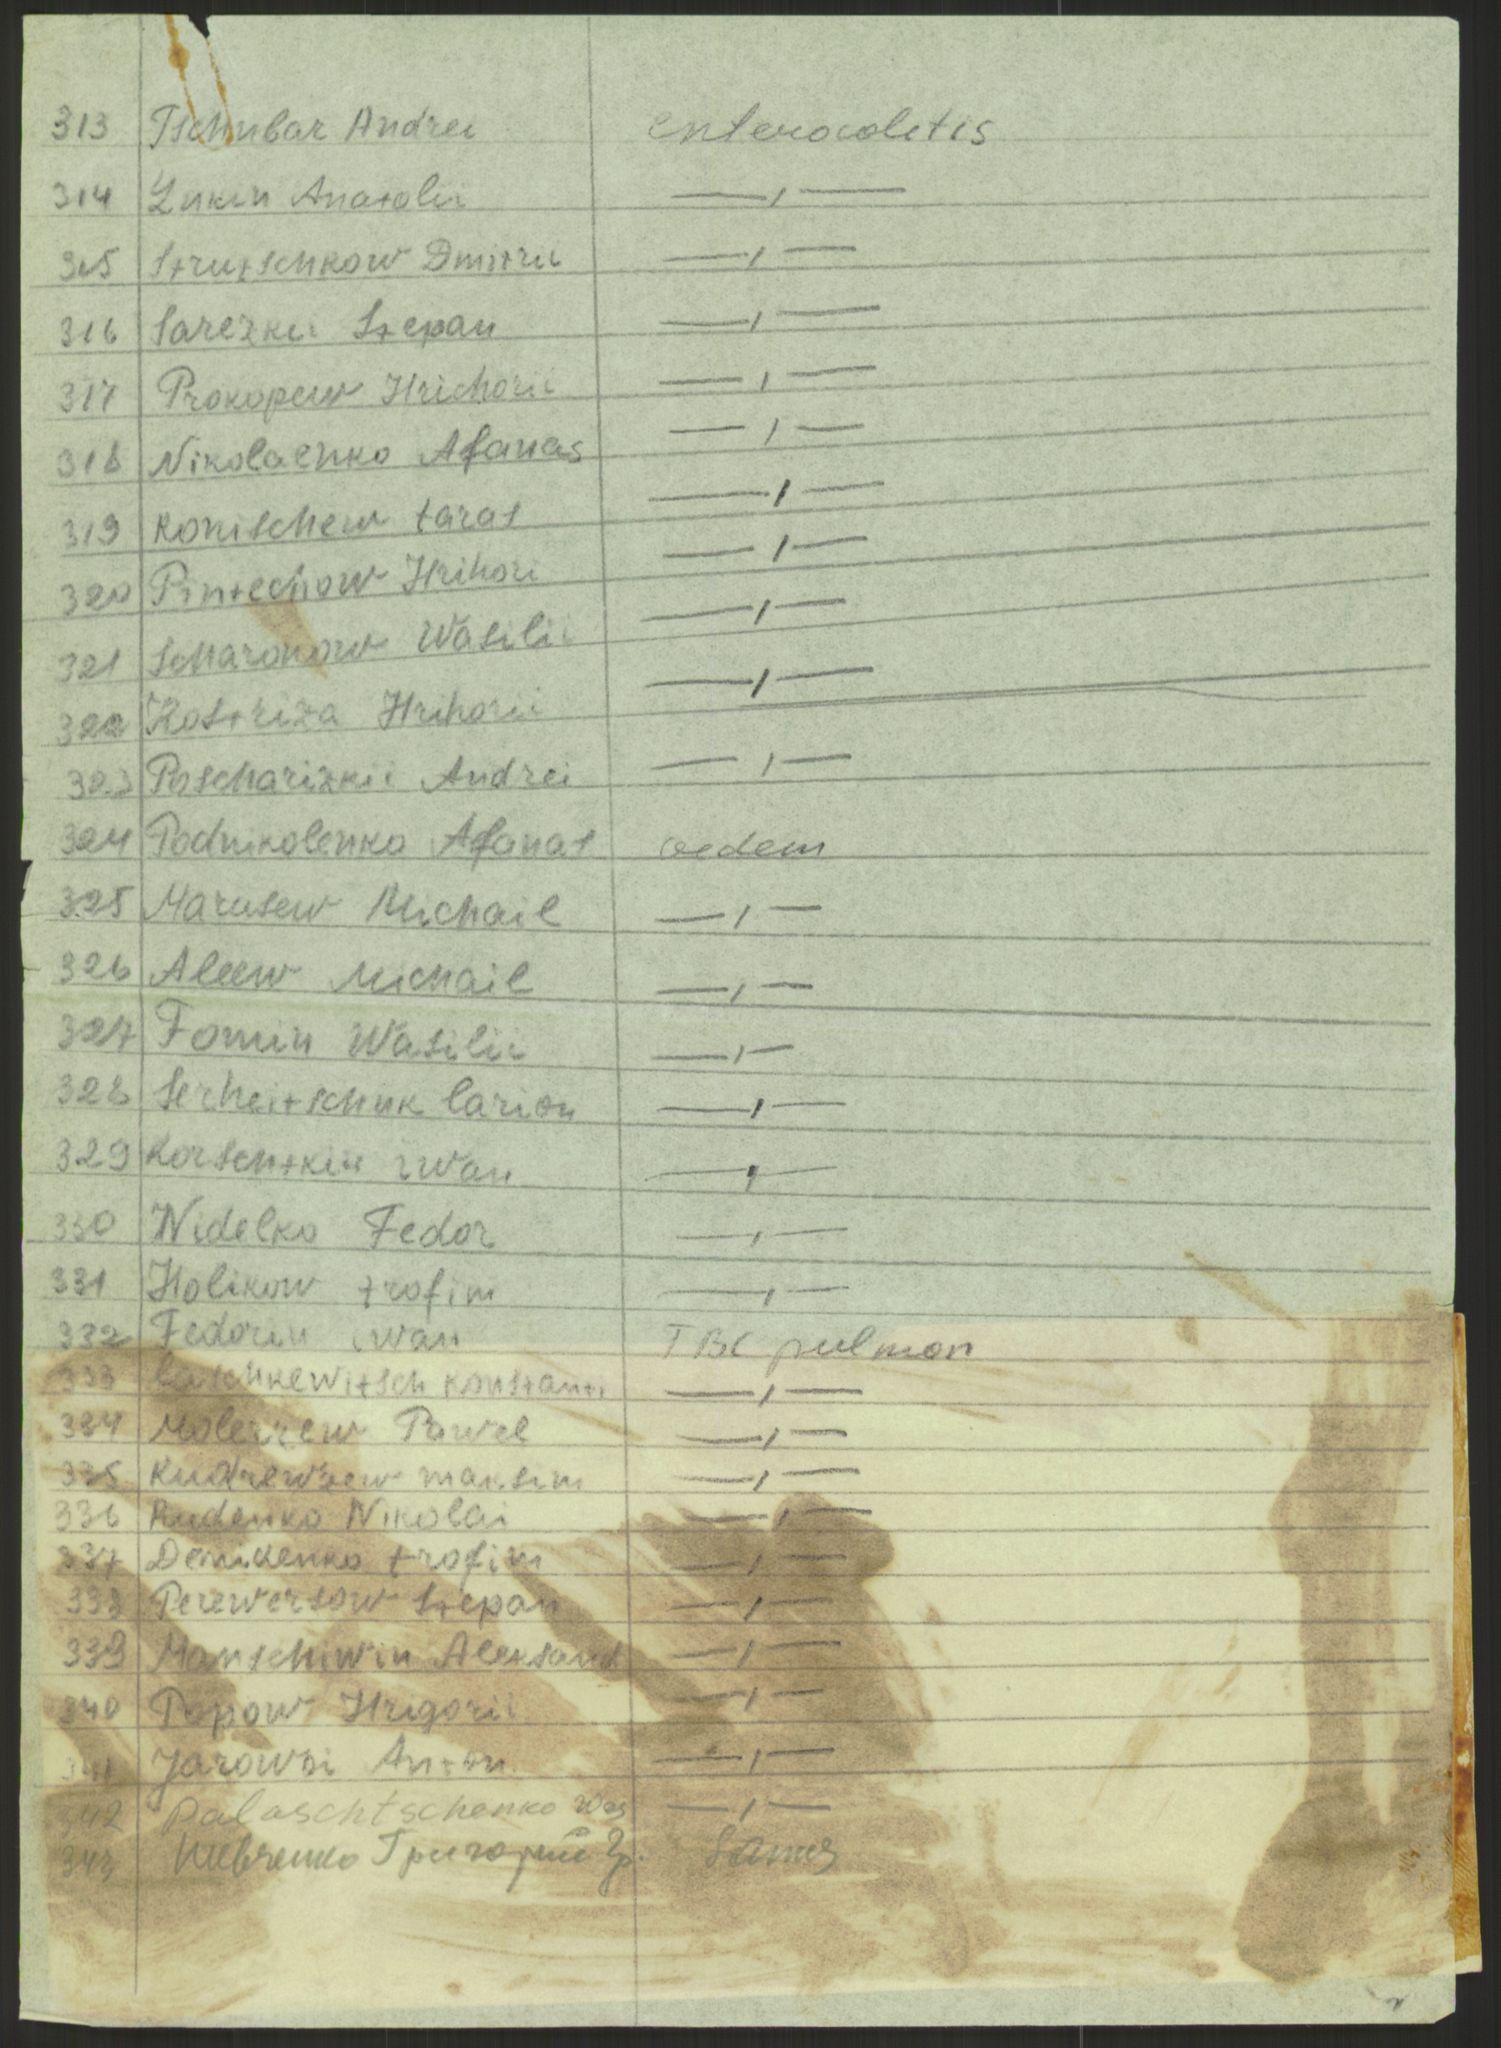 313 Tschubar Andrei enterocolitis
314 Lukin Anatolii —,—
315 Strutschkow Dmitrii —,—
316 Sarezkii Stepan —,—
317 Prokopew Hrichorii —,—
318 Nikolaenko Afanas —,—
319 Konischew taras —,—
320 Pintechow Hrihori —,—
321 Scharonow Wasilii —,—
322 Kostriza Hrihorii —,—
323 Poscharizkii Andrei —,—
324 Podnikolenko Afanas oedem
325 Marusew Michail —,—
326 Aleew Michail —,—
327 Fomin Wasilii —,—
328 Serheitschuk larion —,—
329 Korschtkin iwan —,—
330 Nidelko Fedor —,—
331 Holikow trofim —,—
332 Fedorin iwan TBC pulmon
333 konstanti —,—
334 Pawel —,—
335 Kudrewzew maksim —,—
336 Rudenko Nikolai —,—
337 Demidenko trofim —,—
338 Perewersow Stepan —,—
339 Manschiwin Aleksand —,—
340 Popow Hrigorii —,—
341 Jarowoi Anton —,—
342 Palaschtschenko Was —,—
343 Шевченко Григорий Гр.